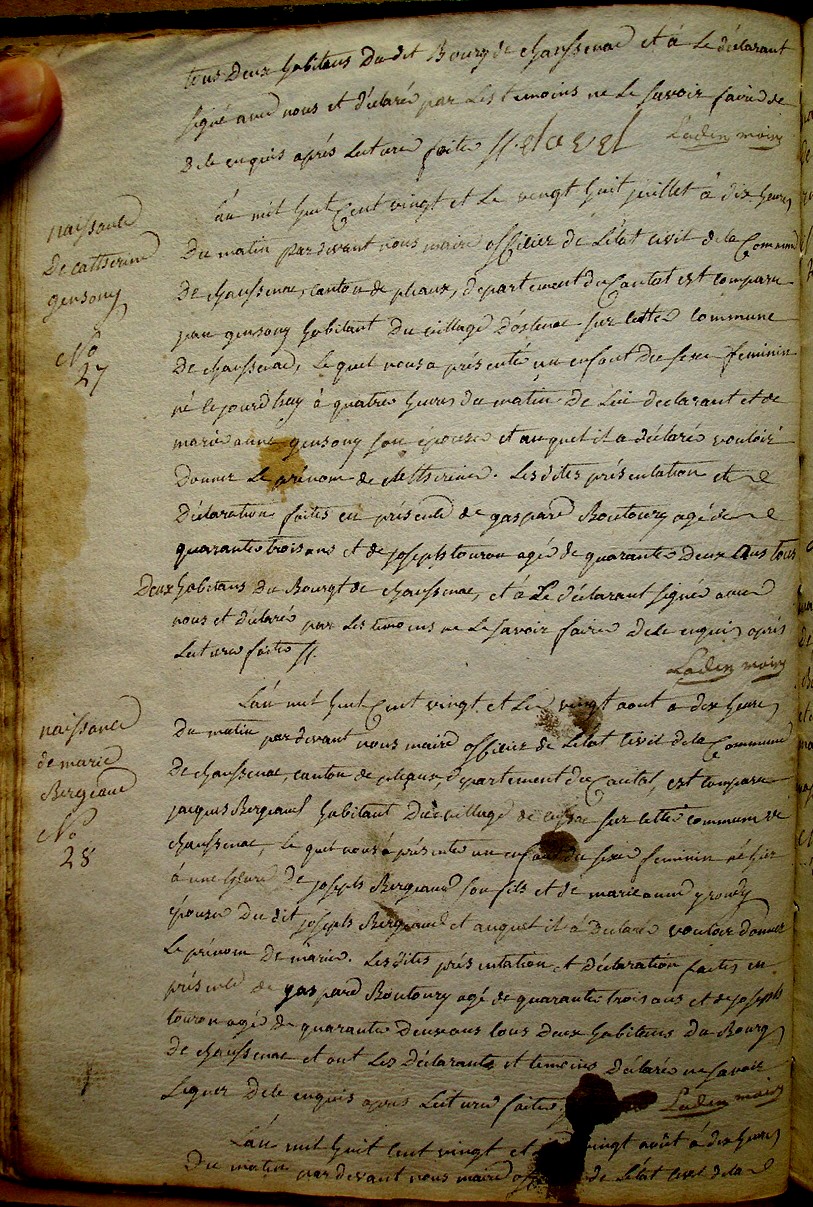 tous deux habitans du dit Bourg de chaussenac et a le déclarant
signé avec nous et déclaré par les temoins ne le savoir faire de
dele enquis après lecture faite //. delavel Laden maire
naissance
De catherine
gensony
No
27
L'an mil huit Cent vingt et le vingt huit juillet à dix heures
Du matin par devant nous maire officier de L'état civil de la Commune
De chaussenac, canton de pleaux, département du Cantal est comparu
jean gensony habitant Du village d'ostenac sur cette commune
De chaussenac, Lequel nous a présenté un enfant du sexe feminin
né le jourd'huy à quatre heures du matin de Lui declarant et de
marie anne gensony son épouse et auquel il a déclaré vouloir
Donner Le prénom de Catherine. Les dites présentation et
Déclaration faites en présence de gaspard Boutoury agé de
quarante trois ans et de joseph touron agé de quarante Deux Ans tous
Deux habitans Du Bourgt de chaussenac, et à Le déclarant signé avec
nous et déclaré par Les temoins ne Le savoir faire dele enquis après
Lecture faite //.
Laden maire
naissance
de marie
Bergeaud
No
28
L'an mil huit Cent vingt et Le vingt aout a dix heures
Du matin par devant nous maire officier de Letat Civil dela Commune
De chaussenac, canton de pleaux, département du Cantal, est comparu
jacques Bergeaud habitant Du village de sur cette commune de
chaussenac, Le quel nous à présenté un enfant du sexe feminin né hier
à une heure de joseph Bergeaud son fils et de marie anne
épouse Du dit joseph Bergeaud et auquel il à Déclaré vouloir donner
Le prénom De marie. Les dites présentation et déclaration faites en
présence de gaspard Boutoury agé de quarante trois ans et de joseph
touron agé de quarante deux ans tous deux habitans Du Bourg
De chaussenac et ont Les Déclarants et temoins Déclaré ne savoir
signer Dele enquis après Lecture faite Laden maire
L'an mil huit Cent vingt et vingt août à dix heures
Du matin par devant nous maire de L'état civil dela